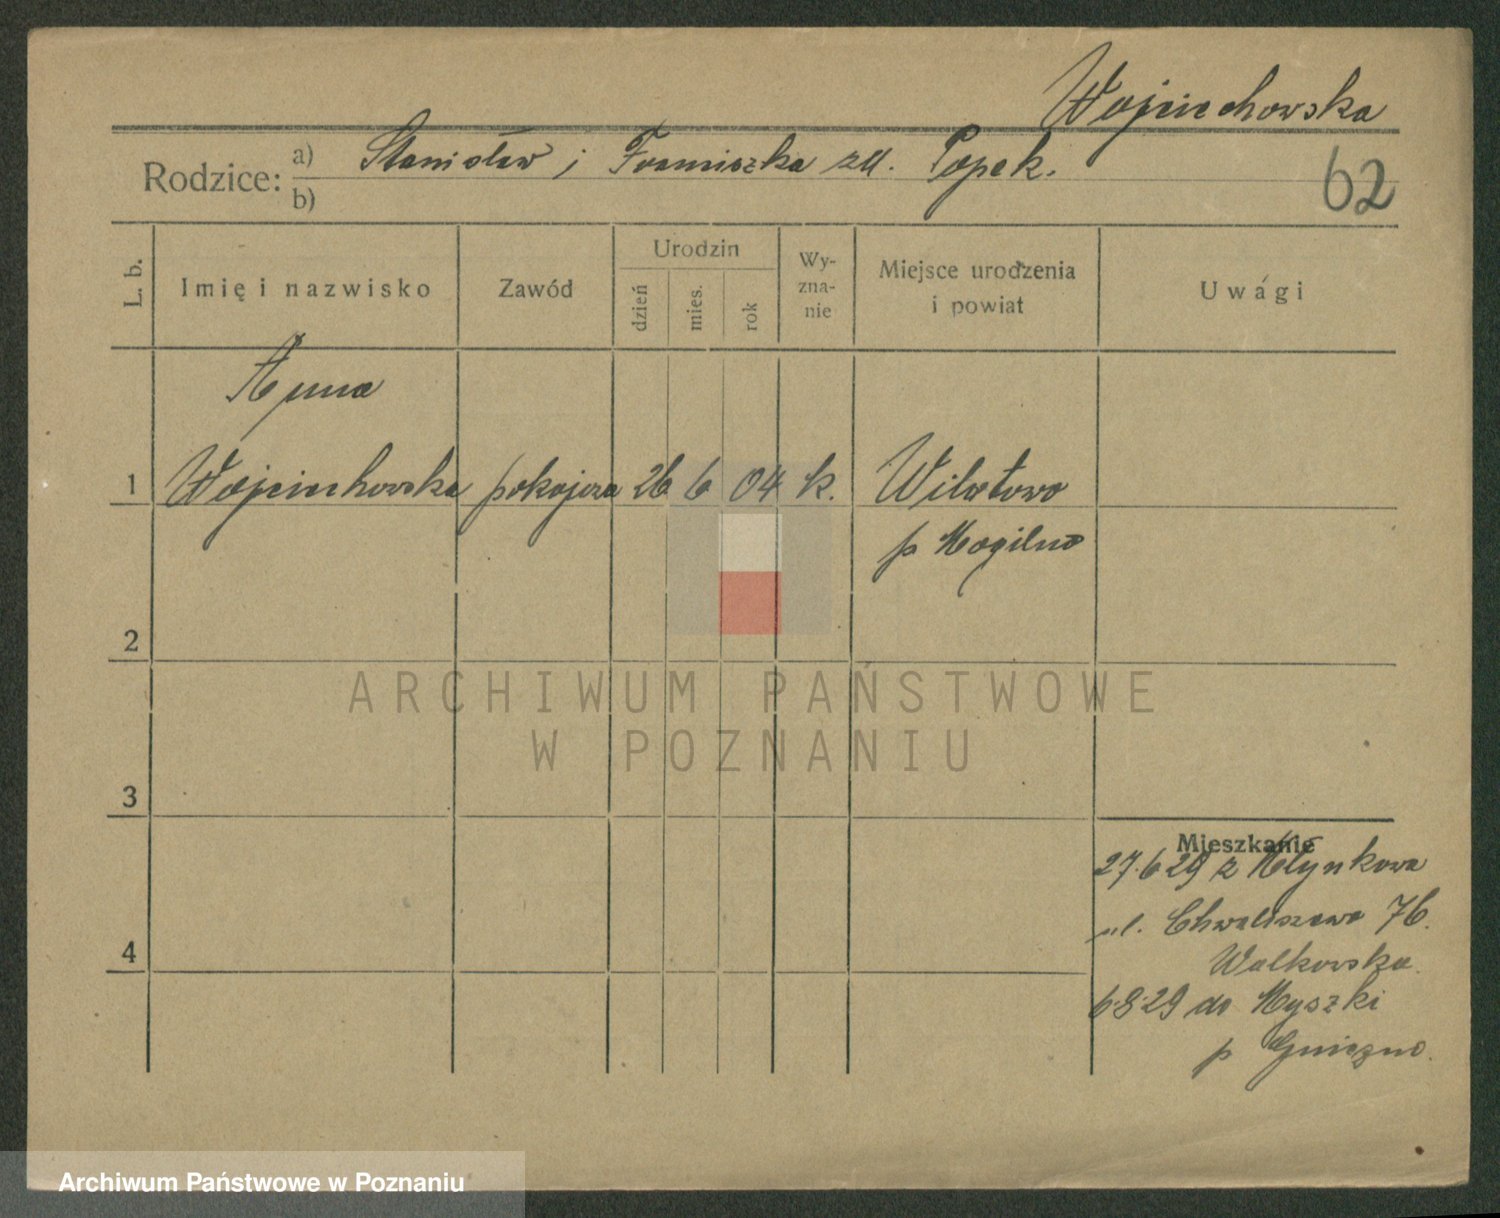 Wojciechowska
Rodzice: a) Stanisław i Franciszka zd. Popek.
b)
62
L. b.
Imię i nazwisko
Zawód
Urodzin
dzień
mies.
rok
Wy-
zna-
nie
Miejsce urodzenia
i powiat
Uwagi
Anna
1 Wojciechowska pokojowa 26 6 04 k. Wilatowo
p Mogilno
2
3
4
Mieszkanie
27.6 29 z Młynkowa
ul. Chwaliszewo 76.
Walkowska.
6.8.29 do Myszki
p Gniezno.
ARCHIWUM PAŃSTWOWE
W POZNANIU
Archiwum Państwowe w Poznaniu